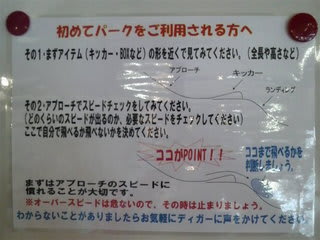 初めてパークをご利用される方へ
その1・まずアイテム(キッカー・BOXなど)の形を近くで見てみてください。(全長や高さなど)
アプローチ
キッカー
ランディング
その2・アプローチでスピードチェックをしてみてください。
(どのくらいのスピードが出るのか、必要なスピードをチェックしてください)
ここで自分で飛べるか飛べないかを決めてください。
ココがPOINT!!
ココまで飛べるかを
判断しましょう。
まずはアプローチのスピードに
慣れることが大切です。
※オーバースピードは危ないので、その時は止まりましょう。
わからないことがありましたらお気軽にディガーに声をかけてください